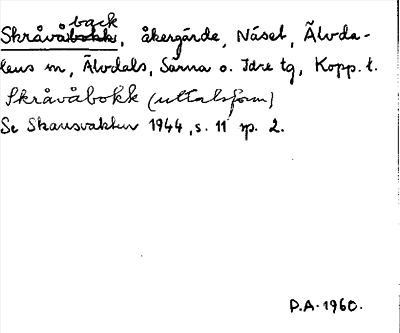 back
Skråvåbokk, åkergärde, Näset, Älvda-
lens sn, Älvdals, Särna o. Idre tg, Kopp. l.
Skråvåbokk (uttalsform)
Se Skansvakten 1944, s. 11 sp. 2.
P.A. 1960.